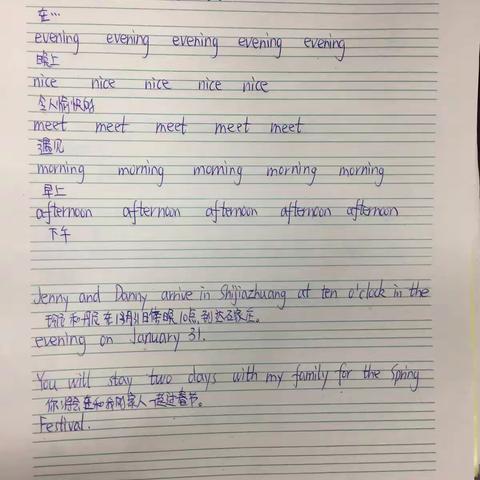 在…
evening evening evening evening evening
晚上
nice nice nice nice nice
令人愉快的
meet meet meet meet meet
遇见
morning morning morning morning morning
早上
afternoon afternoon afternoon afternoon afternoon
下午
Jenny and Danny arrive in Shijiazhuang at ten o'clock in the
和丹尼在1月31日 晚10点,到达石家庄。
evening on January 31.
You will stay two days with my family for the Spring
你将会 和我的家人一起过春节。
Festival.